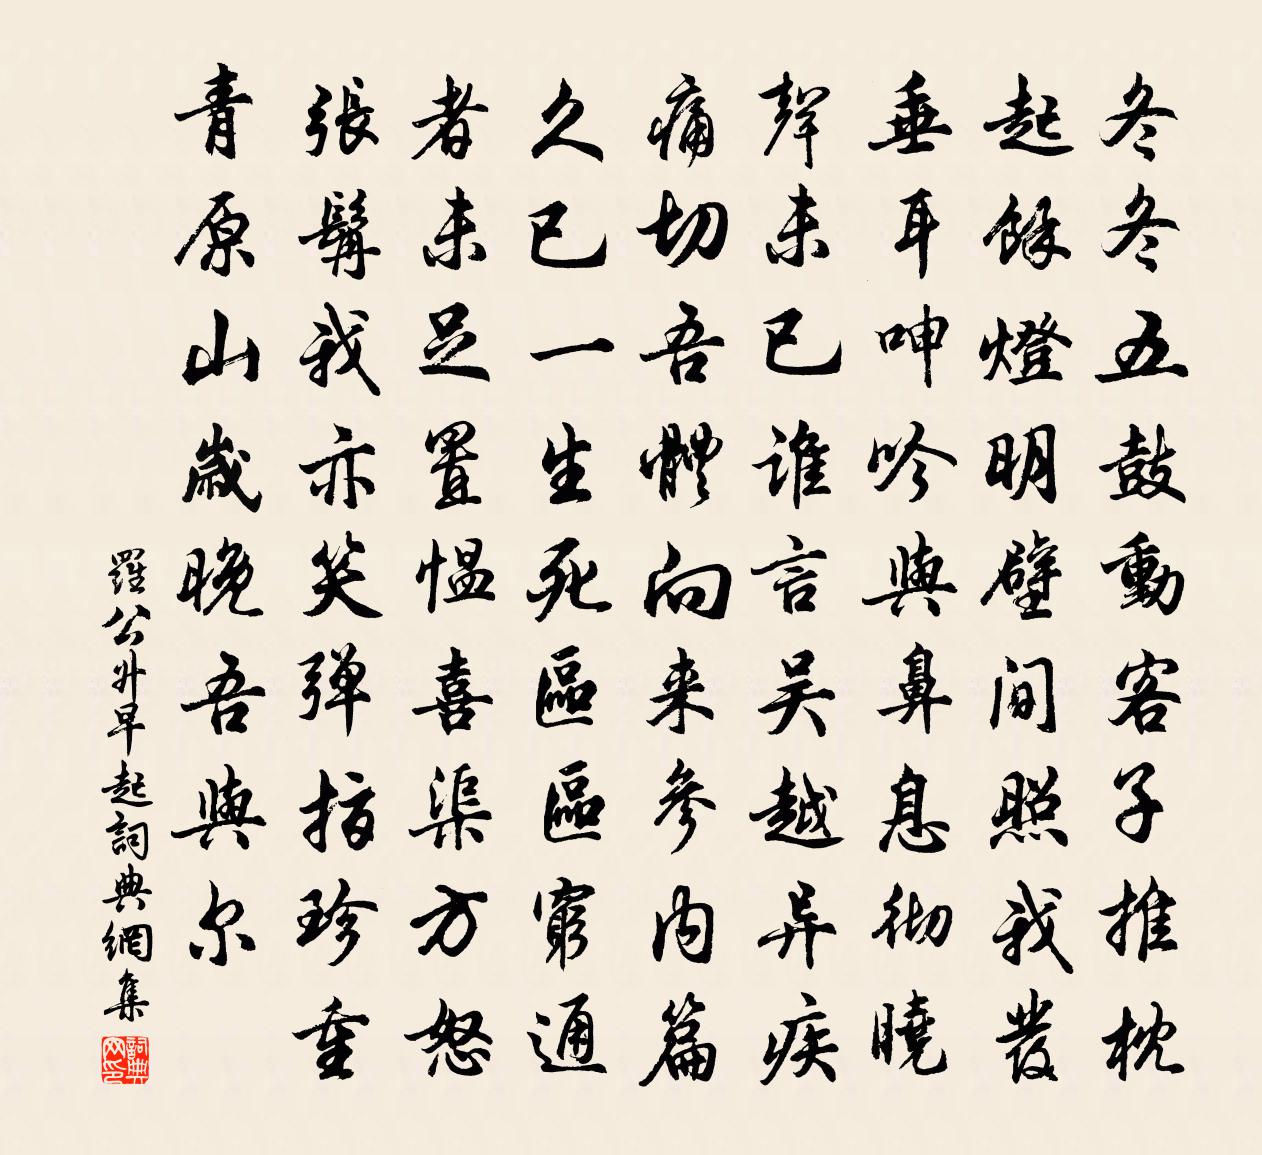 冬冬五鼓動客子推枕
起餘燈明壁間照我發
垂耳呻吟與鼻息彻曉
聲未已谁言吴越异疾
痛切吾體向来參内篇
久已一生死區區窮通
者未足置愠喜渠方怒
張髯我亦笑弹指珍重
青原山歲晚吾與尔
羅公升早起詞典網集
詞典网印